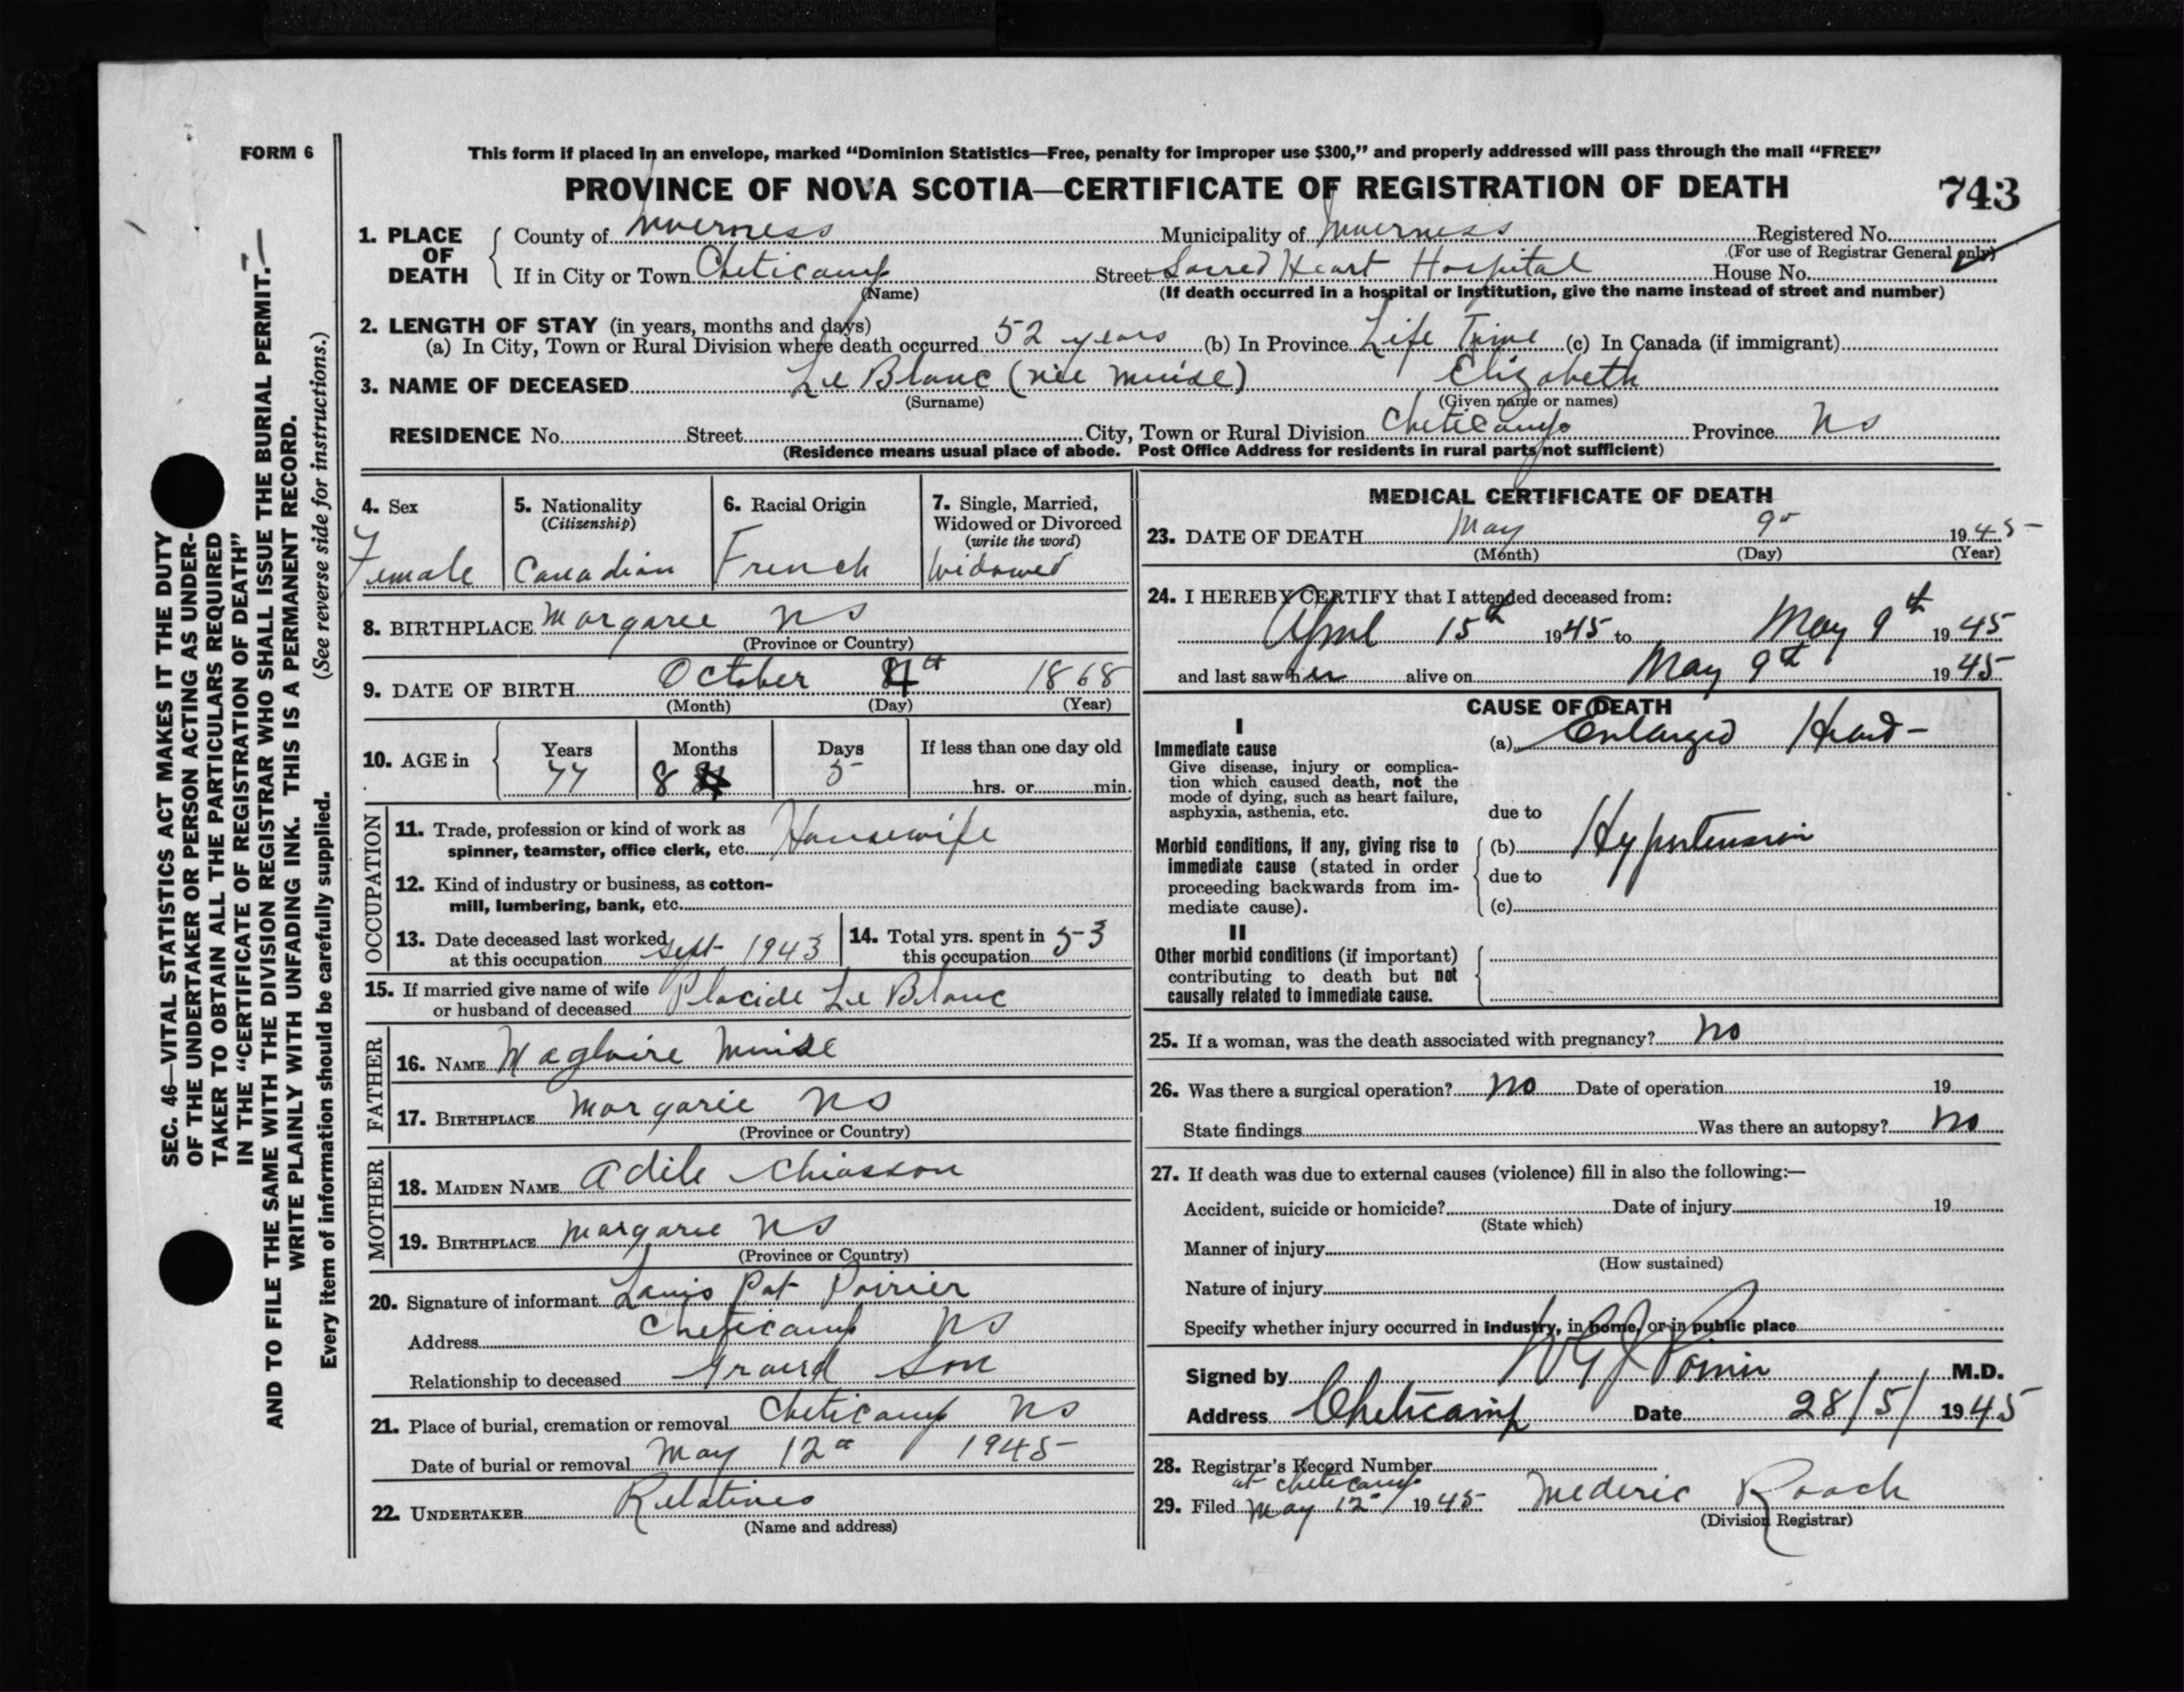 FORM 6
This form if placed in an envelope, marked "Dominion Statistics—Free, penalty for improper use $300," and properly addressed will pass through the mail "FREE"
PROVINCE OF NOVA SCOTIA—CERTIFICATE OF REGISTRATION OF DEATH
743
1. PLACE OF DEATH
County of Inverness Municipality of Inverness Registered No.
(For use of Registrar General only)
If in City or Town Cheticamp Street Sacred Heart Hospital House No.
(Name) (If death occurred in a hospital or institution, give the name instead of street and number)
2. LENGTH OF STAY (in years, months and days)
(a) In City, Town or Rural Division where death occurred 52 years (b) In Province Life Time (c) In Canada (if immigrant)
3. NAME OF DECEASED Le Blanc (née Muise) Elizabeth
(Surname) (Given name or names)
RESIDENCE No. Street City, Town or Rural Division Cheticamp Province NS
(Residence means usual place of abode. Post Office Address for residents in rural parts not sufficient)
4. Sex
Female
5. Nationality
(Citizenship)
Canadian
6. Racial Origin
French
7. Single, Married,
Widowed or Divorced
(write the word)
Widowed
8. BIRTHPLACE Margaree NS
(Province or Country)
9. DATE OF BIRTH October 4th 1868
(Month) (Day) (Year)
10. AGE in
Years Months Days If less than one day old
77 8 5 hrs. or min.
OCCUPATION
11. Trade, profession or kind of work as
spinner, teamster, office clerk, etc. Housewife
12. Kind of industry or business, as cotton-
mill, lumbering, bank, etc.
13. Date deceased last worked
at this occupation Sept 1943
14. Total yrs. spent in
this occupation 53
15. If married give name of wife
or husband of deceased Placide Le Blanc
FATHER
16. NAME Magloire Muise
17. BIRTHPLACE Margarie NS
(Province or Country)
MOTHER
18. MAIDEN NAME Adile Chiasson
19. BIRTHPLACE Margaree NS
(Province or Country)
20. Signature of informant Louis Pat Poirier
Address Cheticamp NS
Relationship to deceased Grand Son
21. Place of burial, cremation or removal Cheticamp NS
Date of burial or removal May 12th 1945
22. UNDERTAKER Relatives
(Name and address)
MEDICAL CERTIFICATE OF DEATH
23. DATE OF DEATH May 9th 1945
(Month) (Day) (Year)
24. I HEREBY CERTIFY that I attended deceased from:
April 15th 1945 to May 9th 1945
and last saw her alive on May 9th 1945
CAUSE OF DEATH
I
Immediate cause (a) Enlarged Heart
Give disease, injury or complica-
tion which caused death, not the
mode of dying, such as heart failure,
asphyxia, asthenia, etc.
due to
Morbid conditions, if any, giving rise to (b) Hypertension
immediate cause (stated in order
proceeding backwards from im- due to
mediate cause). (c)
II
Other morbid conditions (if important)
contributing to death but not
causally related to immediate cause.
25. If a woman, was the death associated with pregnancy? no
26. Was there a surgical operation? no Date of operation 19
State findings Was there an autopsy? no
27. If death was due to external causes (violence) fill in also the following:—
Accident, suicide or homicide? Date of injury 19
(State which)
Manner of injury
(How sustained)
Nature of injury
Specify whether injury occurred in industry, in home, or in public place
Signed by W G J Poirier M.D.
Address Cheticamp Date 28/5/1945
28. Registrar's Record Number
at Cheticamp
29. Filed May 12th 1945 Mederic Roach
(Division Registrar)
SEC. 46—VITAL STATISTICS ACT MAKES IT THE DUTY
OF THE UNDERTAKER OR PERSON ACTING AS UNDER-
TAKER TO OBTAIN ALL THE PARTICULARS REQUIRED
IN THE "CERTIFICATE OF REGISTRATION OF DEATH"
AND TO FILE THE SAME WITH THE DIVISION REGISTRAR WHO SHALL ISSUE THE BURIAL PERMIT.—
WRITE PLAINLY WITH UNFADING INK. THIS IS A PERMANENT RECORD.
Every item of information should be carefully supplied. (See reverse side for instructions.)